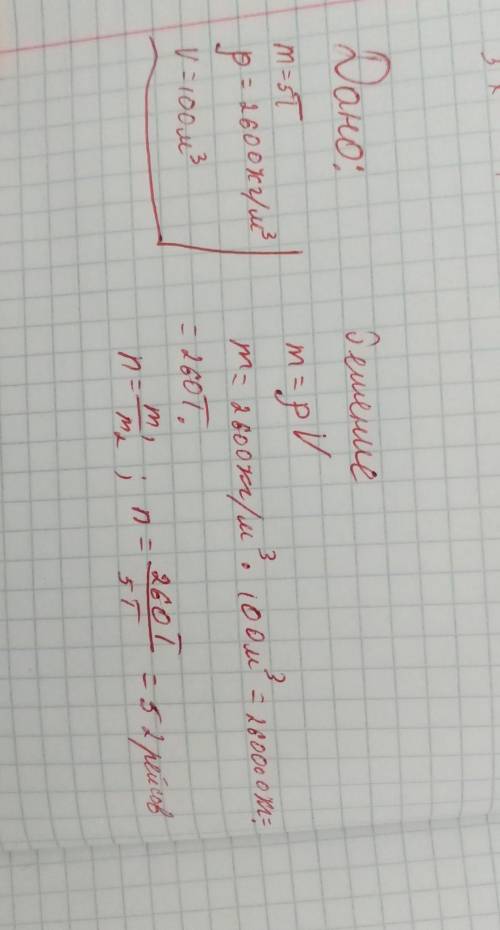 Дано:
m = 5т
ρ = 2600кг/м³
V = 100м³
Решение
m = ρV
m = 2600кг/м³ · 100м³ = 260000кг=
= 260т.
n = m₁/m₂ ; n = 260т/5т = 52 рейсов